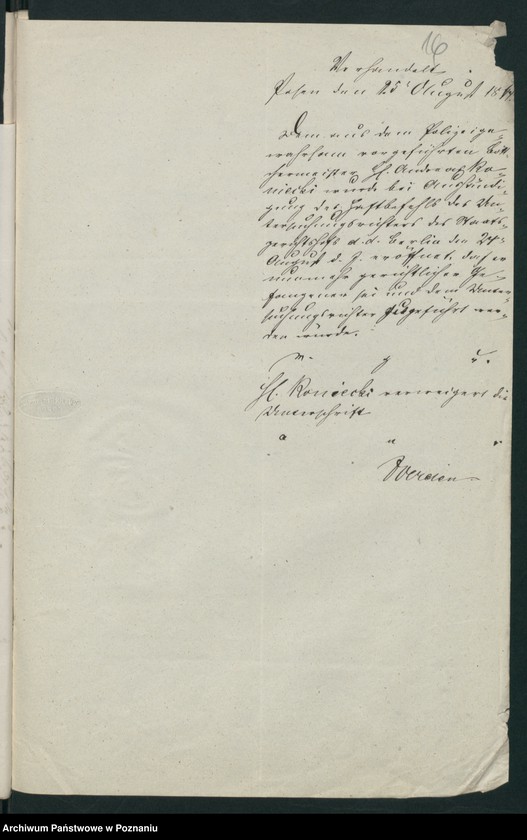 16
Verhandelt
Posen den 25t August 18
Dem aus dem Polizeige-
wahrsam vorgeführten Bött-
chermeister H. Andreas Ko-
niecki wurde bei Aushändi-
gung des Haftbefehls des Un-
tersuchungsrichters des Staats-
gerichtshofs d. d. Berlin den 24t
August d. J. eröffnet, daß er
nunmehr gerichtlicher Ge-
fangener sei und dem Unter-
suchungsrichter zugeführt wer-
den würde.
v. g. u.
H. Koniecki verweigert die
Unterschrift
a u
Archiwum Państwowe w Poznaniu